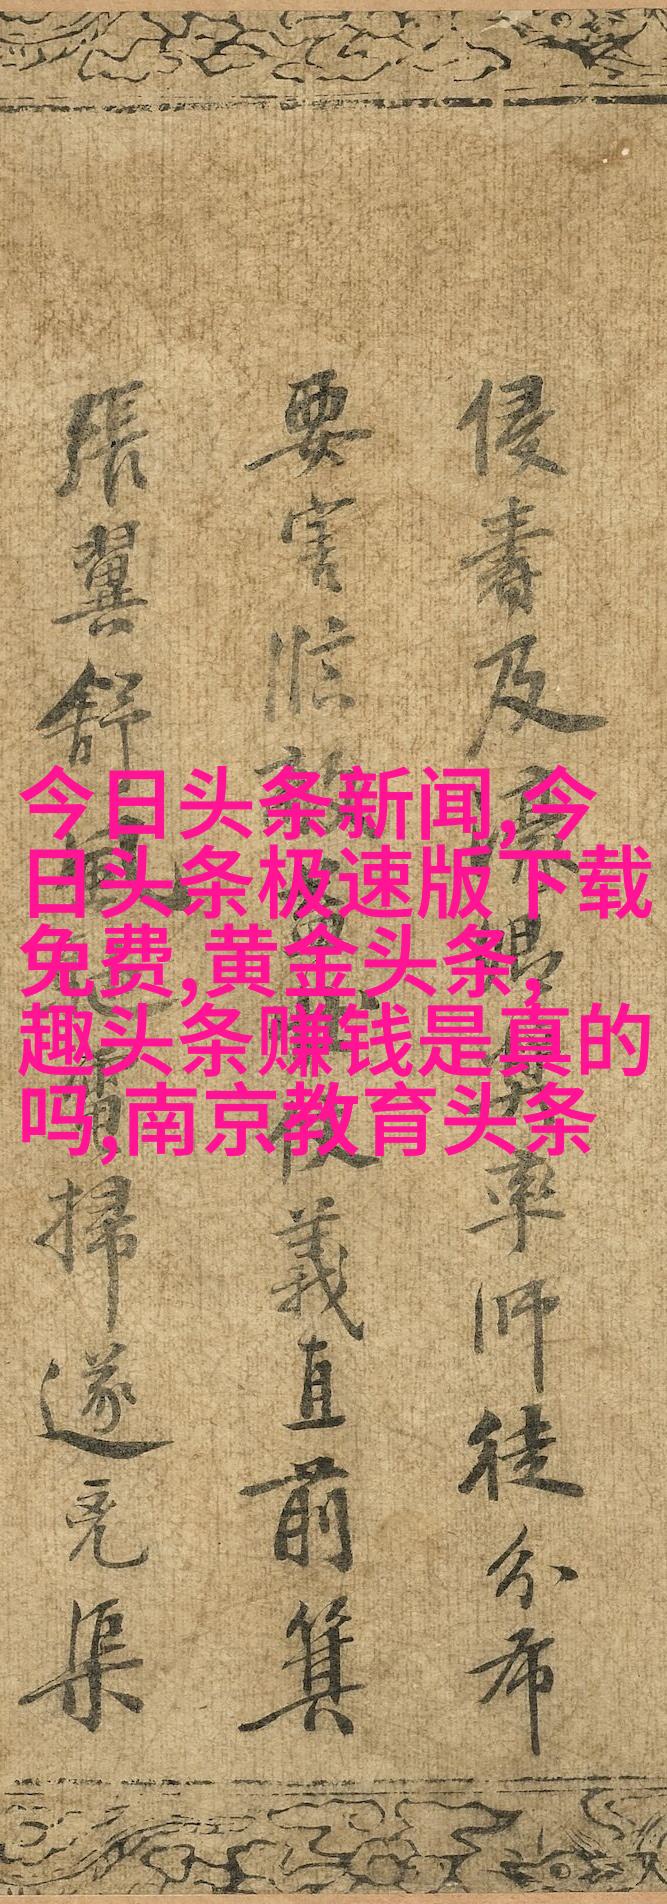 今日头条新闻,今
日头条极速版下载
免费,黄金头条,
趣头条赚钱是真的
吗,南京教育头条
侵書及率師徒分布
要害臨敵仗義直前箕
張翼舒風掃遂克渠